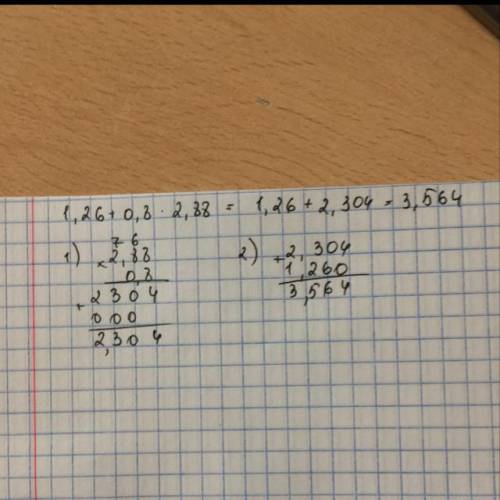 1,26 + 0,8 · 2,88 = 1,26 + 2,304 = 3,564
1) 7 6
× 2,88
0,8
+ 2304
000
2,304
2) + 2,304
1,260
3,564